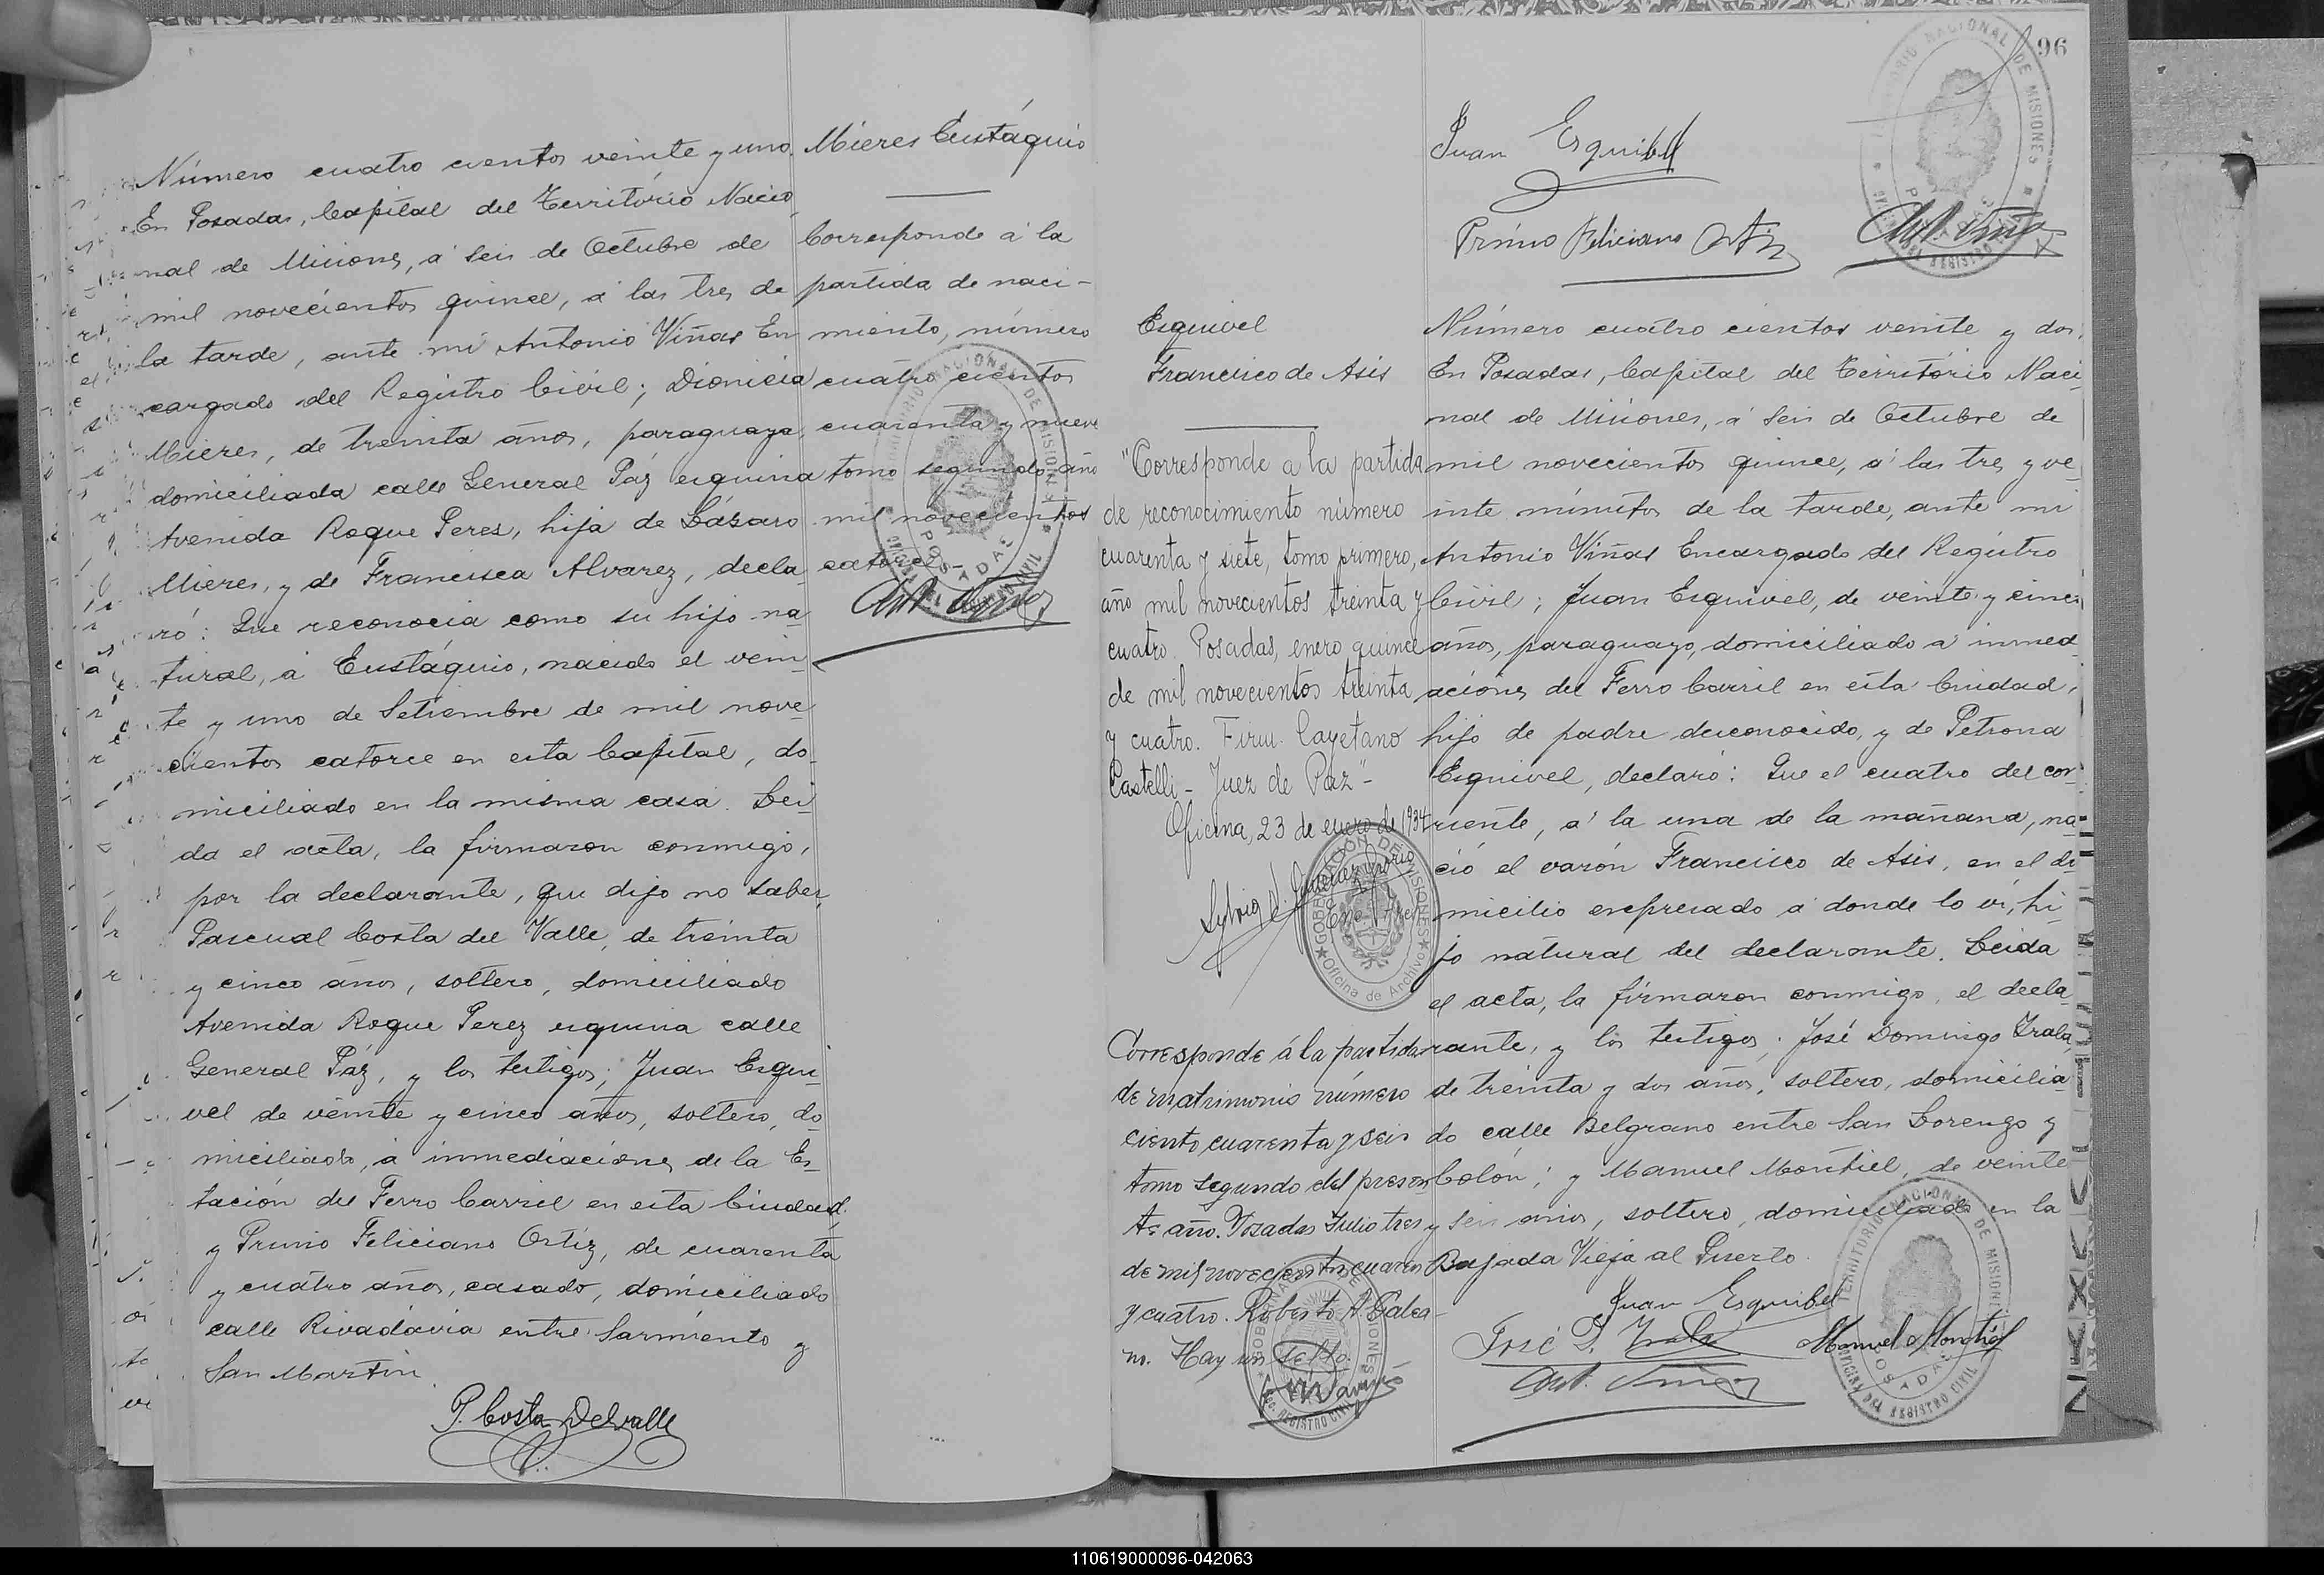 Número cuatro cientos veinte y uno.
En Posadas, Capital del Território Nacio
nal de Misiones, á seis de Octubre de
mil novecientos quince, á las tres de
la tarde, ante mi Antonio Viñas En
cargado del Registro Civil; Dionicia
Mieres, de treinta años, paraguaya,
domiciliada calle General Páz esquina
Avenida Roque Peres, hija de Lázaro
Mieres, y de Francisca Alvarez, decla
ró: Que reconocia como su hijo na
tural, á Eustáquio, nacido el vein
te y uno de Setiembre de mil nove
cientos catorce en esta Capital, do
miciliado en la misma casa. Lei
da el acta, la firmaron conmigo,
por la declarante, que dijo no saber,
Pascual Costa del Valle, de treinta
y cinco años, soltero, domiciliado
Avenida Roque Perez esquina calle
General Páz, y los testigos; Juan Esqui
vel de veinte y cinco años, soltero, do
miciliado, á inmediaciones de la Es
tación del Ferro Carril en esta Ciudad.
y Primo Feliciano Ortiz, de cuarenta
y cuatro años, casado, domiciliado
calle Rivadávia entre Sarmiento y
San Martin.
P. Costa Delvalle
Mieres Eustáquio
Corresponde á la
partida de naci-
miento, número
cuatro cientos
cuarenta y nueve
tomo segundo año
mil novecientos
catorce.-
Ant. Viñas
TERRITORIO NACIONAL DE MISIONES
POSADAS
DIVISION DEL REGISTRO CIVIL
96
Juan Esquibel
Primo Feliciano Ortiz
Ant. Viñas
TERRITORIO NACIONAL DE MISIONES
POSADAS
DIVISION DEL REGISTRO CIVIL
Esquivel
Francisco de Asis
"Corresponde a la partida
de reconocimiento número
cuarenta y siete, tomo primero,
año mil novecientos treinta y
cuatro. Posadas, enero quince
de mil novecientos treinta
y cuatro. Firm. Cayetano
Castelli - Juez de Paz"-
Oficina, 23 de enero de 1934
GOBERNACIÓN DE MISIONES
Oficina de Archivo
Corresponde á la partida
de matrimonio número
ciento cuarenta y seis
tomo segundo del presen
te año. Posadas Julio tres
de mil novecientos cuaren
y cuatro. Roberto A. Galea-
no. Hay un sello.
GOBERNACION DE MISIONES
REGISTRO CIVIL
Número cuatro cientos veinte y dos.
En Posadas, Capital del Território Naci
nal de Misiones, á seis de Octubre de
mil novecientos quince, á las tres y ve
inte minutos de la tarde, ante mi
Antonio Viñas Encargado del Registro
Civil; Juan Esquivel, de veinte y cinco
años, paraguayo, domiciliado á inmed
aciones del Ferro Carril en esta Ciudad,
hijo de padre desconocido, y de Petrona
Esquivel, declaró: Que el cuatro del cor
riente, á la una de la mañana, na
ció el varón Francisco de Asis, en el do
micilio expresado a donde lo ví, hi
jo natural del declarante. Leida
el acta, la firmaron conmigo, el decla
rante, y los testigos; José Domingo Trala,
de treinta y dos años, soltero, domicilia
do calle Belgrano entre San Lorenzo y
Colón; y Manuel Montiel, de veinte
y seis años, soltero, domiciliado en la
Bajada Vieja al Puerto.
Juan Esquibel
José D.
Manuel Montiel
Ant. Viñas
TERRITORIO NACIONAL DE MISIONES
POSADAS
DIVISION DEL REGISTRO CIVIL
110619000096-042063